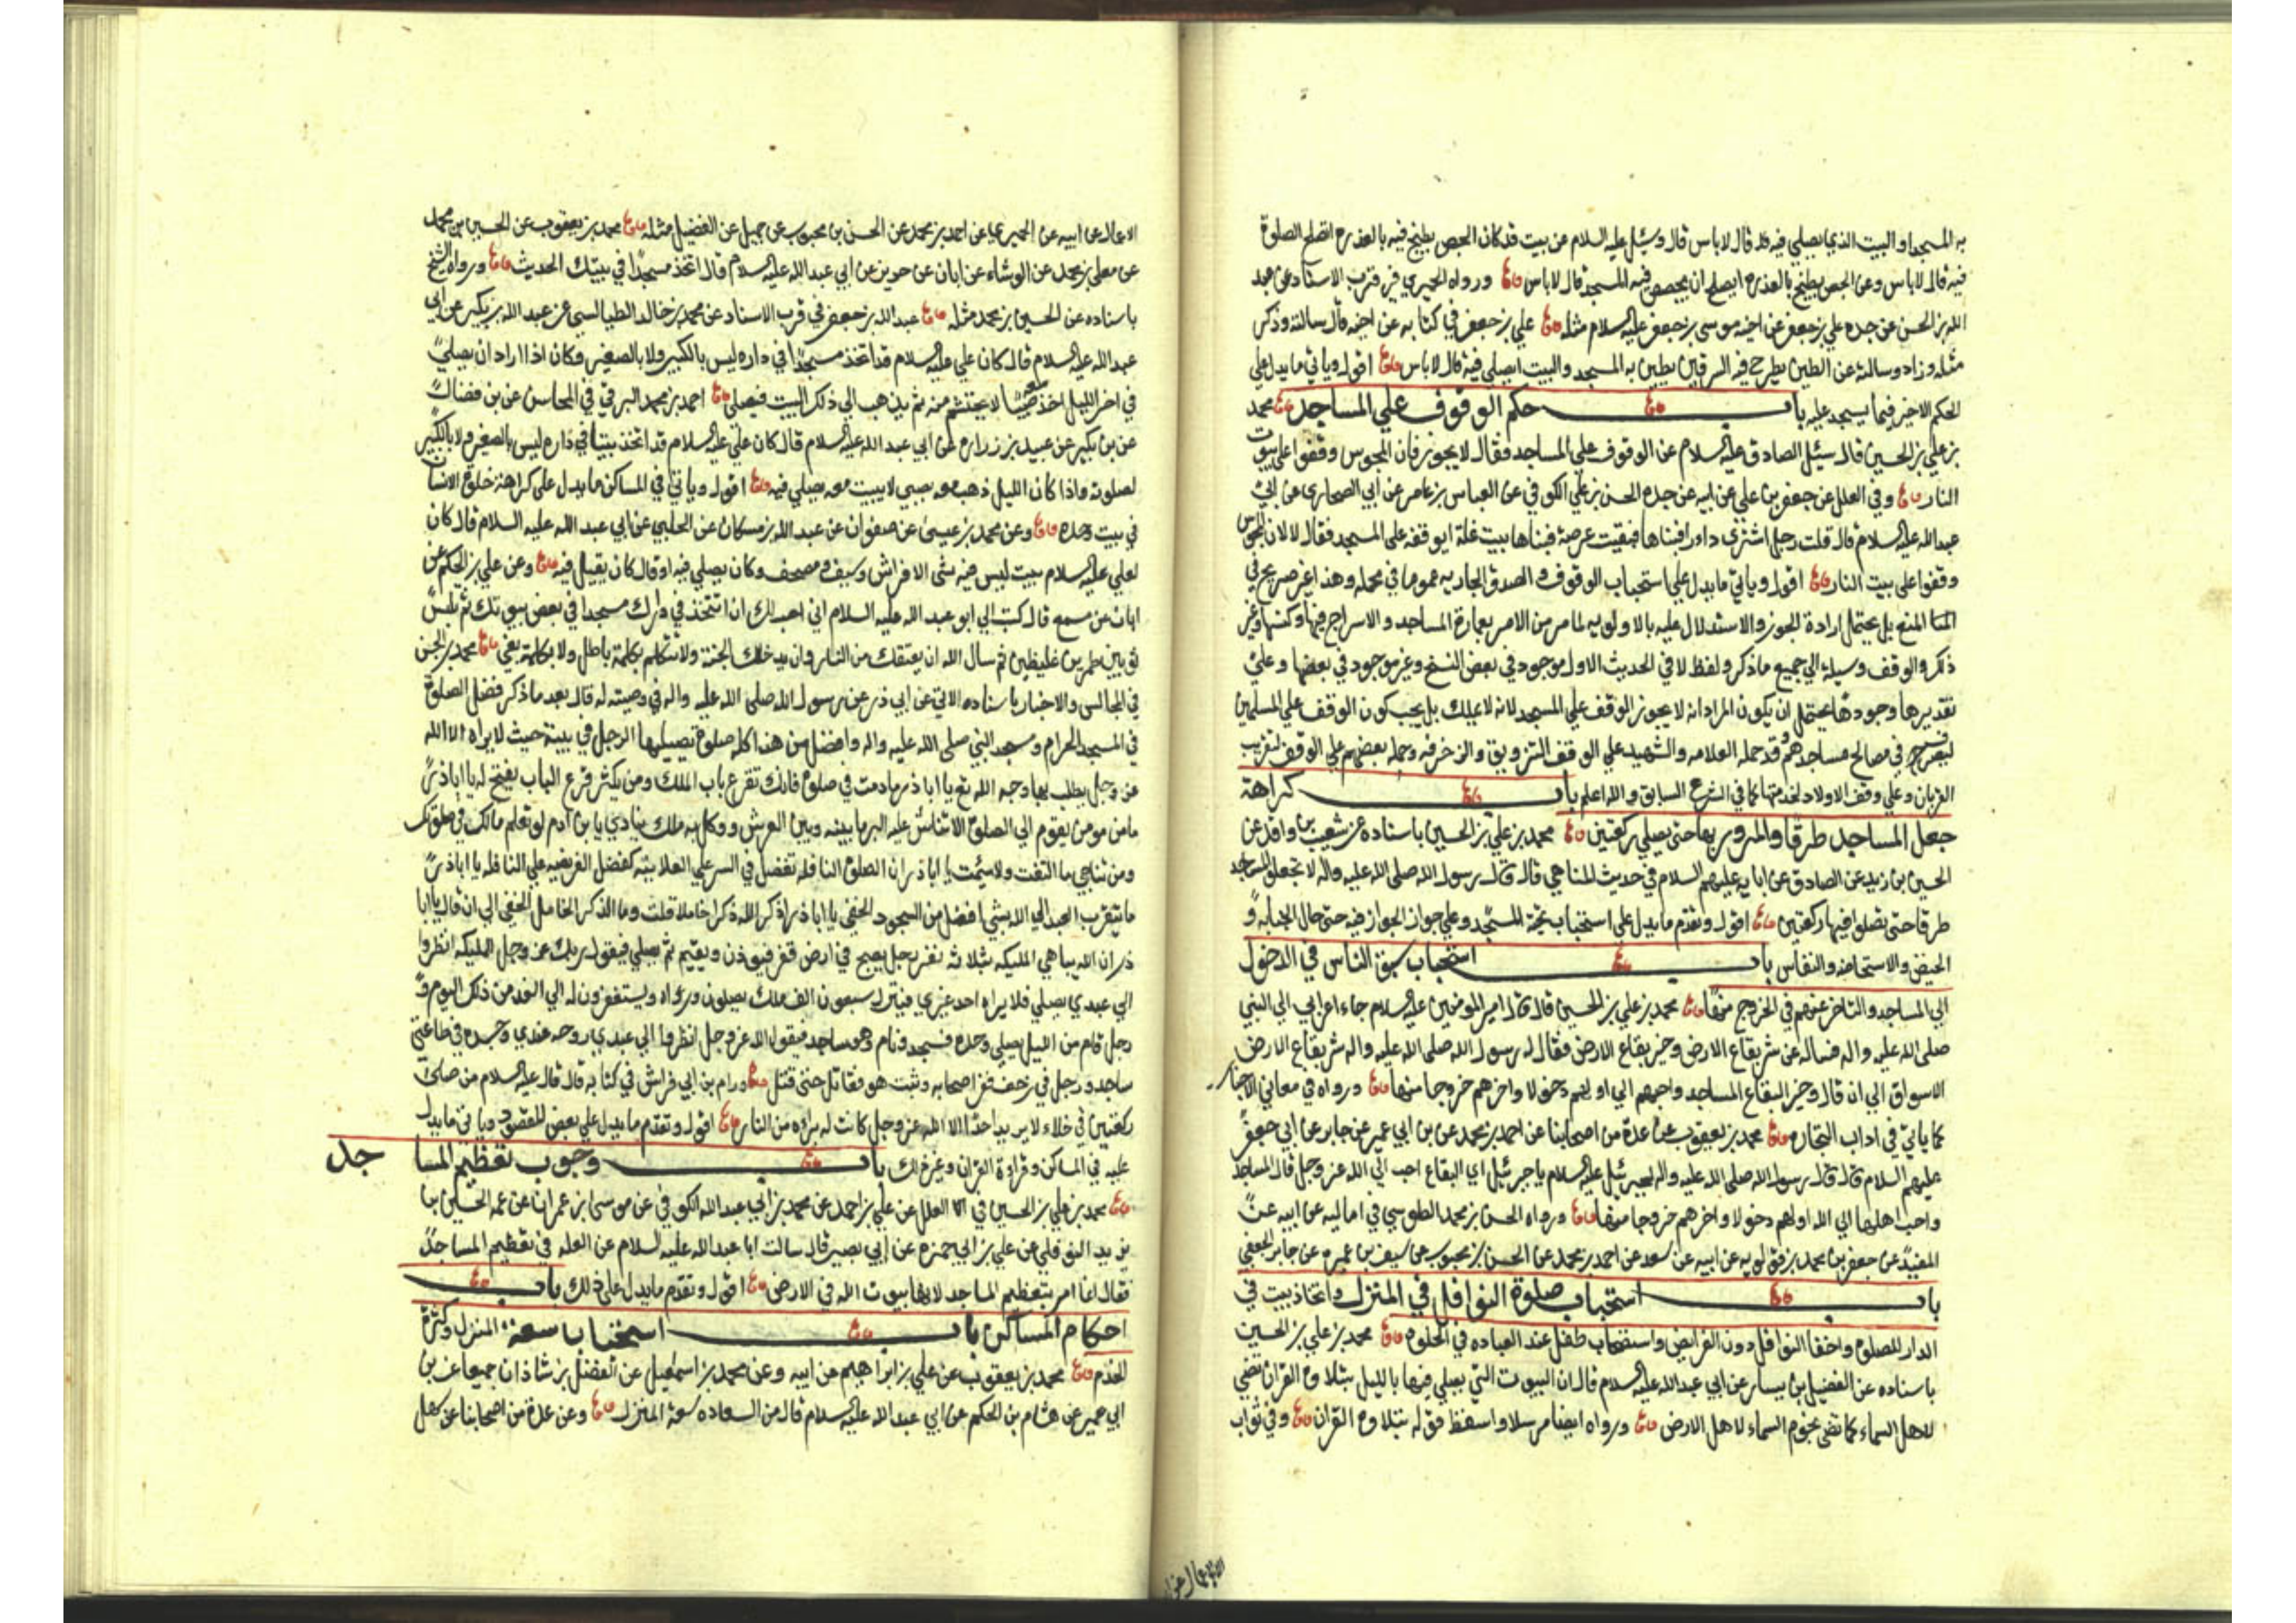 به المسجد او البيت الذي يصلي فيه قال لا باس قال وسئل عليه السلام عن بيت قد كان الجص يطبخ فيه بالعذره اتصلح الصلوة
فيه قال لا باس وعن الجص يطبخ بالعذره ايصلح ان يجصص فيه المسجد قال لا باس ورواه الحميري في قرب الاسناد عن عبد
الله بن الحسن عن جده علي بن جعفر عن اخيه موسى بن جعفر عليه السلام مثله علي بن جعفر في كتابه عن اخيه قال سالته وذكر
مثله وزاد وسالته عن الطين يطرح فيه السرقين يطين به المسجد والبيت ايصلي فيه قال لا باس اقول وياتي ما يدل علي
الحكم الاخير فيما يسجد عليه باب حكم الوقوف علي المساجد محمد
بن علي بن الحسين قال سئل الصادق عليه السلام عن الوقوف على المساجد فقال لا يجوز فان المجوس وقفوا على بيوت
النار وفي العلل عن جعفر بن علي عن ابيه عن جده الحسن بن علي الكوفي عن العباس بن عامر عن ابي الصحاري عن ابي
عبد الله عليه السلام قال قلت رجل اشترى دارا فبناها فبقيت عرصة فبناها بيت غلة ايوقفه على المسجد فقال لا لان المجوس
وقفوا على بيت النار اقول وياتي ما يدل على استحباب الوقوف والصدق الجاريه عموما في محله وهذا غير صريح في
المنع بل يحتمل ارادة الجوز والاستدلال عليه بالاولويه لما مر من الامر بعمارة المساجد والاسراج فيها وكنسها وغير
ذلك والوقف وسيلة الي جميع ما ذكر ولفظ لا في الحديث الاول موجود في بعض النسخ وغير موجود في بعضها وعلي
تقديرها وجودها يحتمل ان يكون المراد انه لا يجوز الوقف علي المسجد لانه لا يملك بل يجب كون الوقف علي المسلمين
ليصرح في مصالح مساجدهم وقد حمله العلامه والشهيد علي الوقف التزويق والزخرفه وحمله بعضهم علي الوقف لتقريب
القربان وعلي وقف الاولاد لخدمتها كما في الشرع السابق والله اعلم باب كراهة
جعل المساجد طرقا والمرور بها حتى يصلي ركعتين محمد بن علي بن الحسين باسناده عن شعيب بن واقد عن
الحسين بن زيد عن الصادق عن ابايه عليهم السلام في حديث المناهي قال قال رسول الله صلى الله عليه واله لا تجعلوا المساجد
طرقا حتى تصلوا فيها ركعتين اقول وتقدم ما يدل على استحباب تحية المسجد وعلي جواز الجواز فيه حتى حال الجنابه و
الحيض والاستحاضه والنفاس باب استحباب سبق الناس في الدخول
الي المساجد والتاخر عنهم في الخروج منها محمد بن علي بن الحسين قال قال امير المومنين عليه السلام جاء اعرابي الي النبي
صلى الله عليه واله فساله عن شر بقاع الارض وخير بقاع الارض فقال له رسول الله صلى الله عليه واله شر بقاع الارض
الاسواق الي ان قال وخير البقاع المساجد واحبهم الي الله اولهم دخولا واخرهم خروجا منها ورواه في معاني الاخبار
كما ياتي في اداب التجاره محمد بن يعقوب عن عدة من اصحابنا عن احمد بن محمد عن بن ابي عمير عن جابر عن ابي جعفر
عليهم السلام قال قال رسول الله صلى الله عليه واله لجبرئيل عليه السلام يا جبرئيل اي البقاع احب الي الله عز وجل قال المساجد
واحب اهلها الي الله اولهم دخولا واخرهم خروجا منها ورواه الحسن بن محمد الطوسي في اماليه عن ابيه عن
المفيد عن جعفر بن محمد بن قولويه عن ابيه عن سعد عن احمد بن محمد عن الحسن بن محبوب عن سيف بن عميره عن جابر الجعفي
باب استحباب صلوة النوافل في المنزل واتخاذ بيت في
الدار للصلوة واخفا النوافل دون الفرايض واستصحاب طفل عند العباده في الخلوه محمد بن علي بن الحسين
باسناده عن الفضيل بن يسار عن ابي عبد الله عليه السلام قال ان البيوت التي يصلي فيها بالليل بتلاوة القران تضي
لاهل السماء كما تضي نجوم السماء لاهل الارض ورواه ايضا مرسلا واسقط قوله بتلاوة القران وفي ثواب
الاعمال عن ابيه
الاعمال عن ابيه عن الحميري عن احمد بن محمد عن الحسن بن محبوب عن جميل عن الفضيل مثله محمد بن يعقوب عن الحسين بن محمد
عن معلي بن محمد عن الوشاء عن ابان عن حريز عن ابي عبد الله عليه السلام قال اتخذ مسجدا في بيتك الحديث ورواه الشيخ
باسناده عن الحسين بن محمد مثله عبد الله بن جعفر في قرب الاسناد عن محمد بن خالد الطيالسي عن عبد الله بن بكير عن ابي
عبد الله عليه السلام قال كان علي عليه السلام قد اتخذ مسجدا في داره ليس بالكبير ولا بالصغير وكان اذا اراد ان يصلي
في اخر الليل اخذ صبيا لا يحتشم منه ثم يذهب الي ذلك البيت فيصلي احمد بن محمد البرقي في المحاسن عن بن فضال
عن بن بكير عن عبيد بن زراره عن ابي عبد الله عليه السلام قال كان علي عليه السلام قد اتخذ بيتا في داره ليس بالصغير ولا بالكبير
لصلوته واذا كان الليل ذهب معه بصبي لا يبيت معه يصلي فيه اقول وياتي في المساكن ما يدل على كراهة خلوة الانسان
في بيت وحده وعن محمد بن عيسى عن صفوان عن عبد الله بن مسكان عن الحلبي عن ابي عبد الله عليه السلام قال كان
لعلي عليه السلام بيت ليس فيه شى الا فراش وسيف ومصحف وكان يصلي فيه او قال كان يقيل فيه وعن علي بن الحكم عن
ابان عن مسمع قال كتب الي ابو عبد الله عليه السلام اني احب لك ان تتخذ في دارك مسجدا في بعض بيوتك ثم تلبس
ثوبين طمرين غليظين ثم سأل الله ان يعتقك من النار وان يدخلك الجنة ولا تتكلم بكلمة باطل ولا بكلمة بغي محمد بن الحسن
في المجالس والاخبار باسناده الاتي عن ابي ذر عن رسول الله صلى الله عليه واله في وصيته له قال بعد ما ذكر فضل الصلوة
في المسجد الحرام ومسجد النبي صلى الله عليه واله وافضل من هذا كله صلوة تصيليها الرجل في بيته حيث لا يراه الا الله
عز وجل يطلب بها وجه الله تع يا ابا ذر ما دمت في صلوة فانك تقرع باب الملك ومن يكثر قرع الباب يفتح له يا اباذر
ما من مومن يقوم الي الصلوة الا تناثر عليه البر ما بينه وبين العرش ووكل به ملك ينادي يا بن ادم لو تعلم مالك في صلوتك
ومن تناجي ما التفت ولا سئمت يا اباذر ان الصلوة النافله تفضل في السر علي العلانيه كفضل الفريضه علي النافله يا اباذر
ما يتقرب العبد الي الله بشي افضل من السجود الخفي يا اباذر اذكر الله ذكرا خاملا قلت وما الذكر الخامل قال الخفي الي ان قال يا ابا
ذر ان الله يباهي المليكه بثلاثه نفر رجل يصبح في ارض قفر فيوذن ويقيم ثم يصلي فيقول ربك عز وجل للمليكه انظروا
الي عبدي يصلي فلا يراه احد غيري فينزل سبعون الف ملك يصلون وراه ويستغفرون له الي الغد من ذلك اليوم و
رجل قام من الليل يصلي وحده فسجد ونام وهو ساجد فيقول الله عز وجل انظروا الي عبدي روحه عندي وجسده في طاعتي
ساجد ورجل في زحف فر اصحابه وثبت هو فقاتل حتى قتل ورام بن ابي فراش في كتابه قال قال عليه السلام من صلى
ركعتين في خلاء لا يريد احدا الا الله عز وجل كانت له براه من النار اقول وتقدم ما يدل علي بعض المقصود وياتي ما يدل
عليه في المساكن وقراءة القران وغير ذلك باب وجوب تعظيم المساجد
محمد بن علي بن الحسين في العلل عن علي بن احمد عن محمد بن ابي عبد الله الكوفي عن موسى بن عمران عن عمه الحسين بن
يزيد النوفلي عن علي بن ابي حمزه عن ابي بصير قال سالت ابا عبد الله عليه السلام عن العله في تعظيم المساجد
فقال انما امر بتعظيم المساجد لانها بيوت الله في الارض اقول وتقدم ما يدل علي ذلك باب
احكام المساكن باب استحباب سعة المنزل وكثرة
الخدم محمد بن يعقوب عن علي بن ابراهيم عن ابيه وعن محمد بن اسمعيل عن الفضل بن شاذان جميعا عن بن
ابي عمير عن هشام بن الحكم عن ابي عبد الله عليه السلام قال من السعاده سعة المنزل وعن عدة من اصحابنا عن سهل